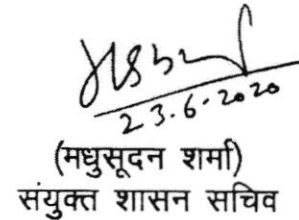 23.6.2020
(मधुसूदन शर्मा)
संयुक्त शासन सचिव